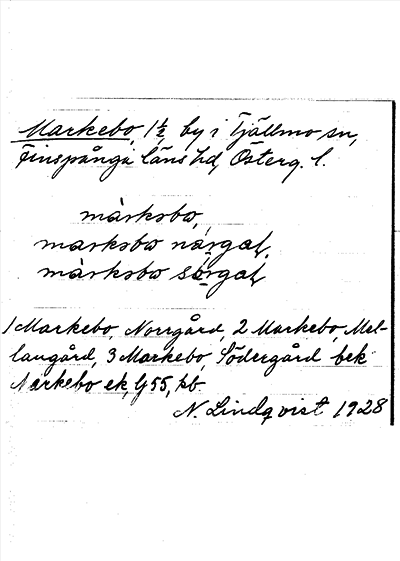 Markebo, 1½, by i Tjällmo sn,
Finspånga läns hd, Österg. l.
màrkəbω,
markəbω nárgaḷ,
màrkəbω sǿrgaḷ,
1 Markebo, Norrgård, 2 Markebo, Mel-
langård, 3 Markebo, Södergård bek
Markebo ek, G 55, kb.
N. Lindqvist 1928